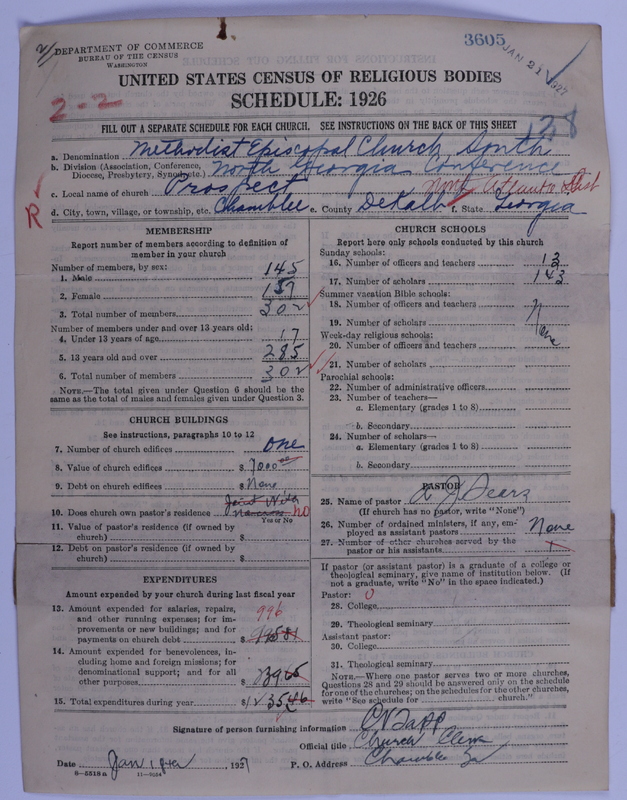 3605
JAN 21 1927
DEPARTMENT OF COMMERCE
BUREAU OF THE CENSUS
WASHINGTON
UNITED STATES CENSUS OF RELIGIOUS BODIES
SCHEDULE: 1926
2-2
FILL OUT A SEPARATE SCHEDULE FOR EACH CHURCH. SEE INSTRUCTIONS ON THE BACK OF THIS SHEET
128
a. Denomination Methodist Episcopal Church, South
b. Division (Association, Conference, Diocese, Presbytery, Synod, etc.) North Georgia Conference
c. Local name of church Prospect Atlanta Dist
R
d. City, town, village, or township, etc. Chamblee e. County DeKalb f. State Georgia
MEMBERSHIP
Report number of members according to definition of
member in your church
Number of members, by sex:
1. Male 145
2. Female 157
3. Total number of members 302
Number of members under and over 13 years old:
4. Under 13 years of age 17
5. 13 years old and over 285
6. Total number of members 302
NOTE.—The total given under Question 6 should be the
same as the total of males and females given under Question 3.
CHURCH BUILDINGS
See instructions, paragraphs 10 to 12
7. Number of church edifices One
8. Value of church edifices $ 7000 00
9. Debt on church edifices $ None
10. Does church own pastor's residence no
Yes or No
11. Value of pastor's residence (if owned by
church) $
12. Debt on pastor's residence (if owned by
church) $
EXPENDITURES
Amount expended by your church during last fiscal year
13. Amount expended for salaries, repairs,
and other running expenses; for im-
provements or new buildings; and for
payments on church debt $
996
14. Amount expended for benevolences, in-
cluding home and foreign missions; for
denominational support; and for all
other purposes
15. Total expenditures during year $
CHURCH SCHOOLS
Report here only schools conducted by this church
Sunday schools:
16. Number of officers and teachers 13
17. Number of scholars 143
Summer vacation Bible schools:
18. Number of officers and teachers
19. Number of scholars
Week-day religious schools:
20. Number of officers and teachers None
21. Number of scholars
Parochial schools:
22. Number of administrative officers
23. Number of teachers—
a. Elementary (grades 1 to 8)
b. Secondary
24. Number of scholars—
a. Elementary (grades 1 to 8)
b. Secondary
PASTOR
25. Name of pastor
(If church has no pastor, write "None")
26. Number of ordained ministers, if any, em-
ployed as assistant pastors None
27. Number of other churches served by the
pastor or his assistants
If pastor (or assistant pastor) is a graduate of a college or
theological seminary, give name of institution below. (If
not a graduate, write "No" in the space indicated.)
Pastor: 0
28. College
29. Theological seminary
Assistant pastor:
30. College
31. Theological seminary
NOTE.—Where one pastor serves two or more churches,
Questions 28 and 29 should be answered only on the schedule
for one of the churches; on the schedules for the other churches,
write "See schedule for church."
Signature of person furnishing information C V Tapp
Official title Church Clerk
Date Jan 18th, 1927 P. O. Address Chamblee Ga
8—5518 a 11—9084